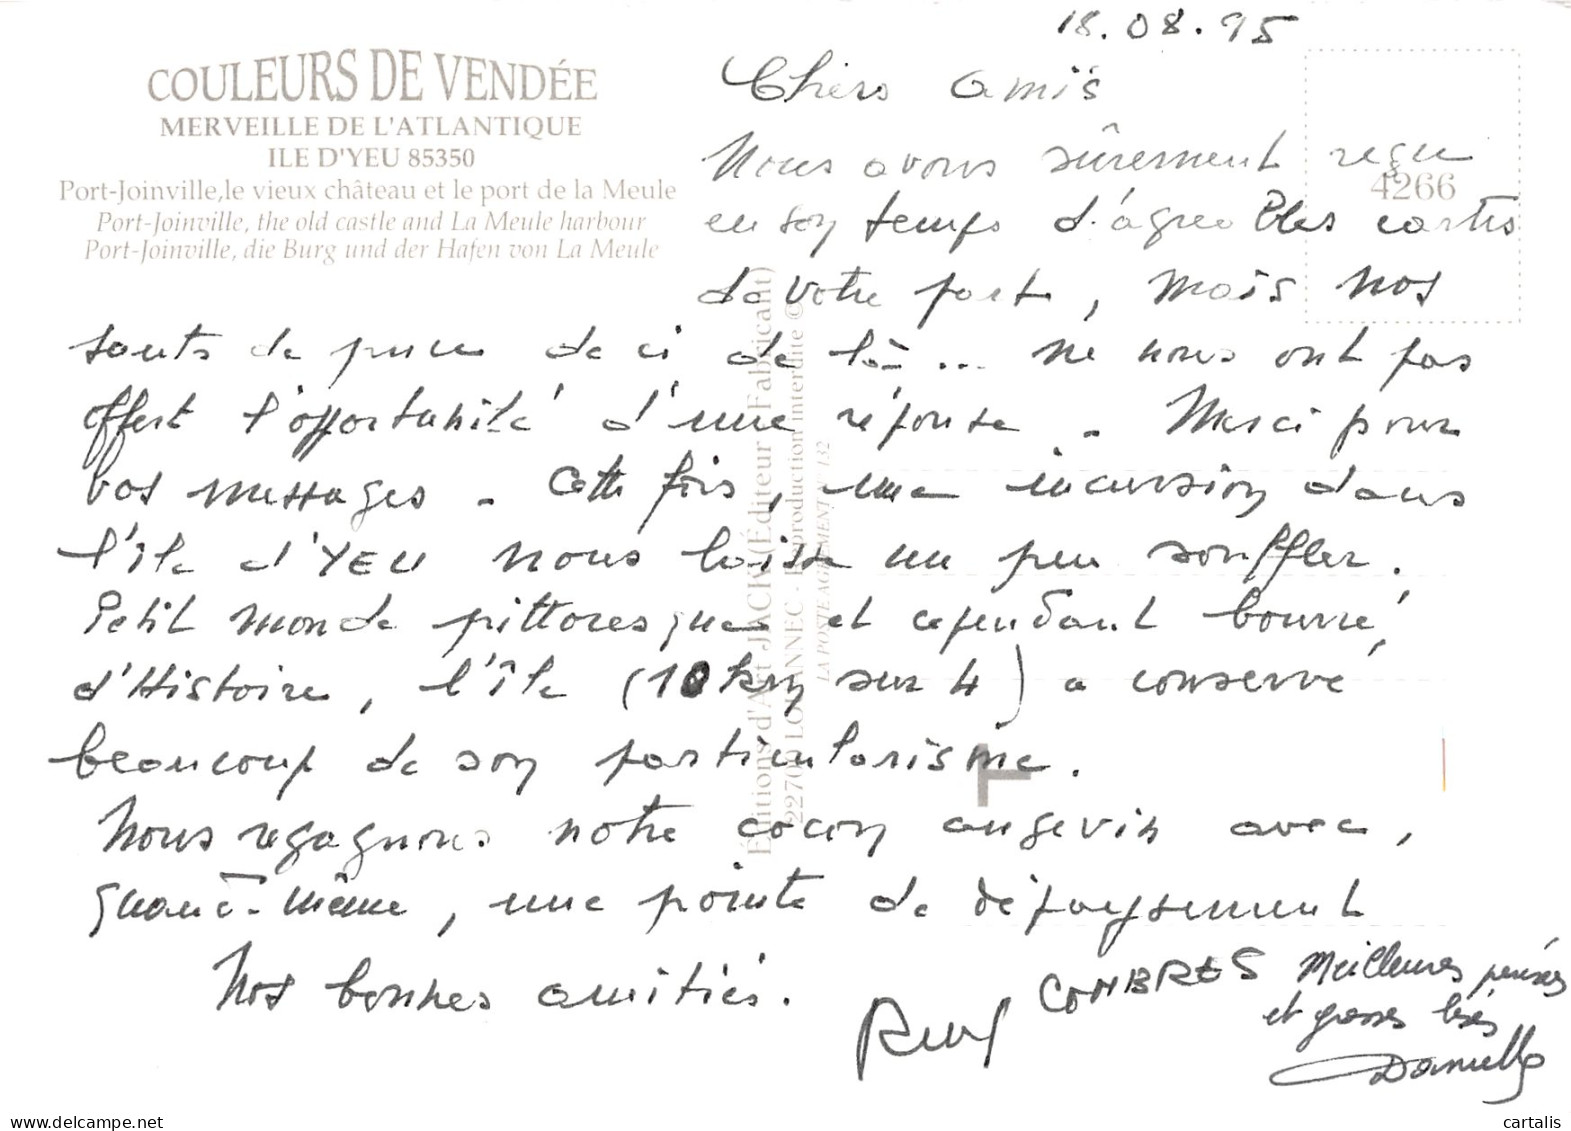 18.08.95
COULEURS DE VENDÉE
MERVEILLE DE L'ATLANTIQUE
ILE D'YEU 85350
Port-Joinville, le vieux château et le port de la Meule
Port-Joinville, the old castle and La Meule harbour
Port-Joinville, die Burg und der Hafen von La Meule
4266
Chers amis
Nous avons sûrement reçu
en son temps d'agréables cartes
de votre part, mais nos
sauts de puce de ci de là... ne nous ont pas
offert l'opportunité d'une réponse. Merci pour
vos messages. Cette fois, une incursion dans
l'île d'YEU nous laisse un peu souffler.
Petit monde pittoresque et cependant bourré
d'Histoire, l'île (10 km sur 4) a conservé
beaucoup de son particularisme.
Nous regagnons notre cocon angevin avec,
quand-même, une pointe de dépaysement
Nos bonnes amitiés.
COMBRES
Meilleures pensées
et grosses bises
Danielle
Éditions d'Art JACK (Éditeur Fabricant)
22700 LOUANNEC - Reproduction interdite ©
LA POSTE AGRÉMENT N° 132
cartalis
delcampe.net